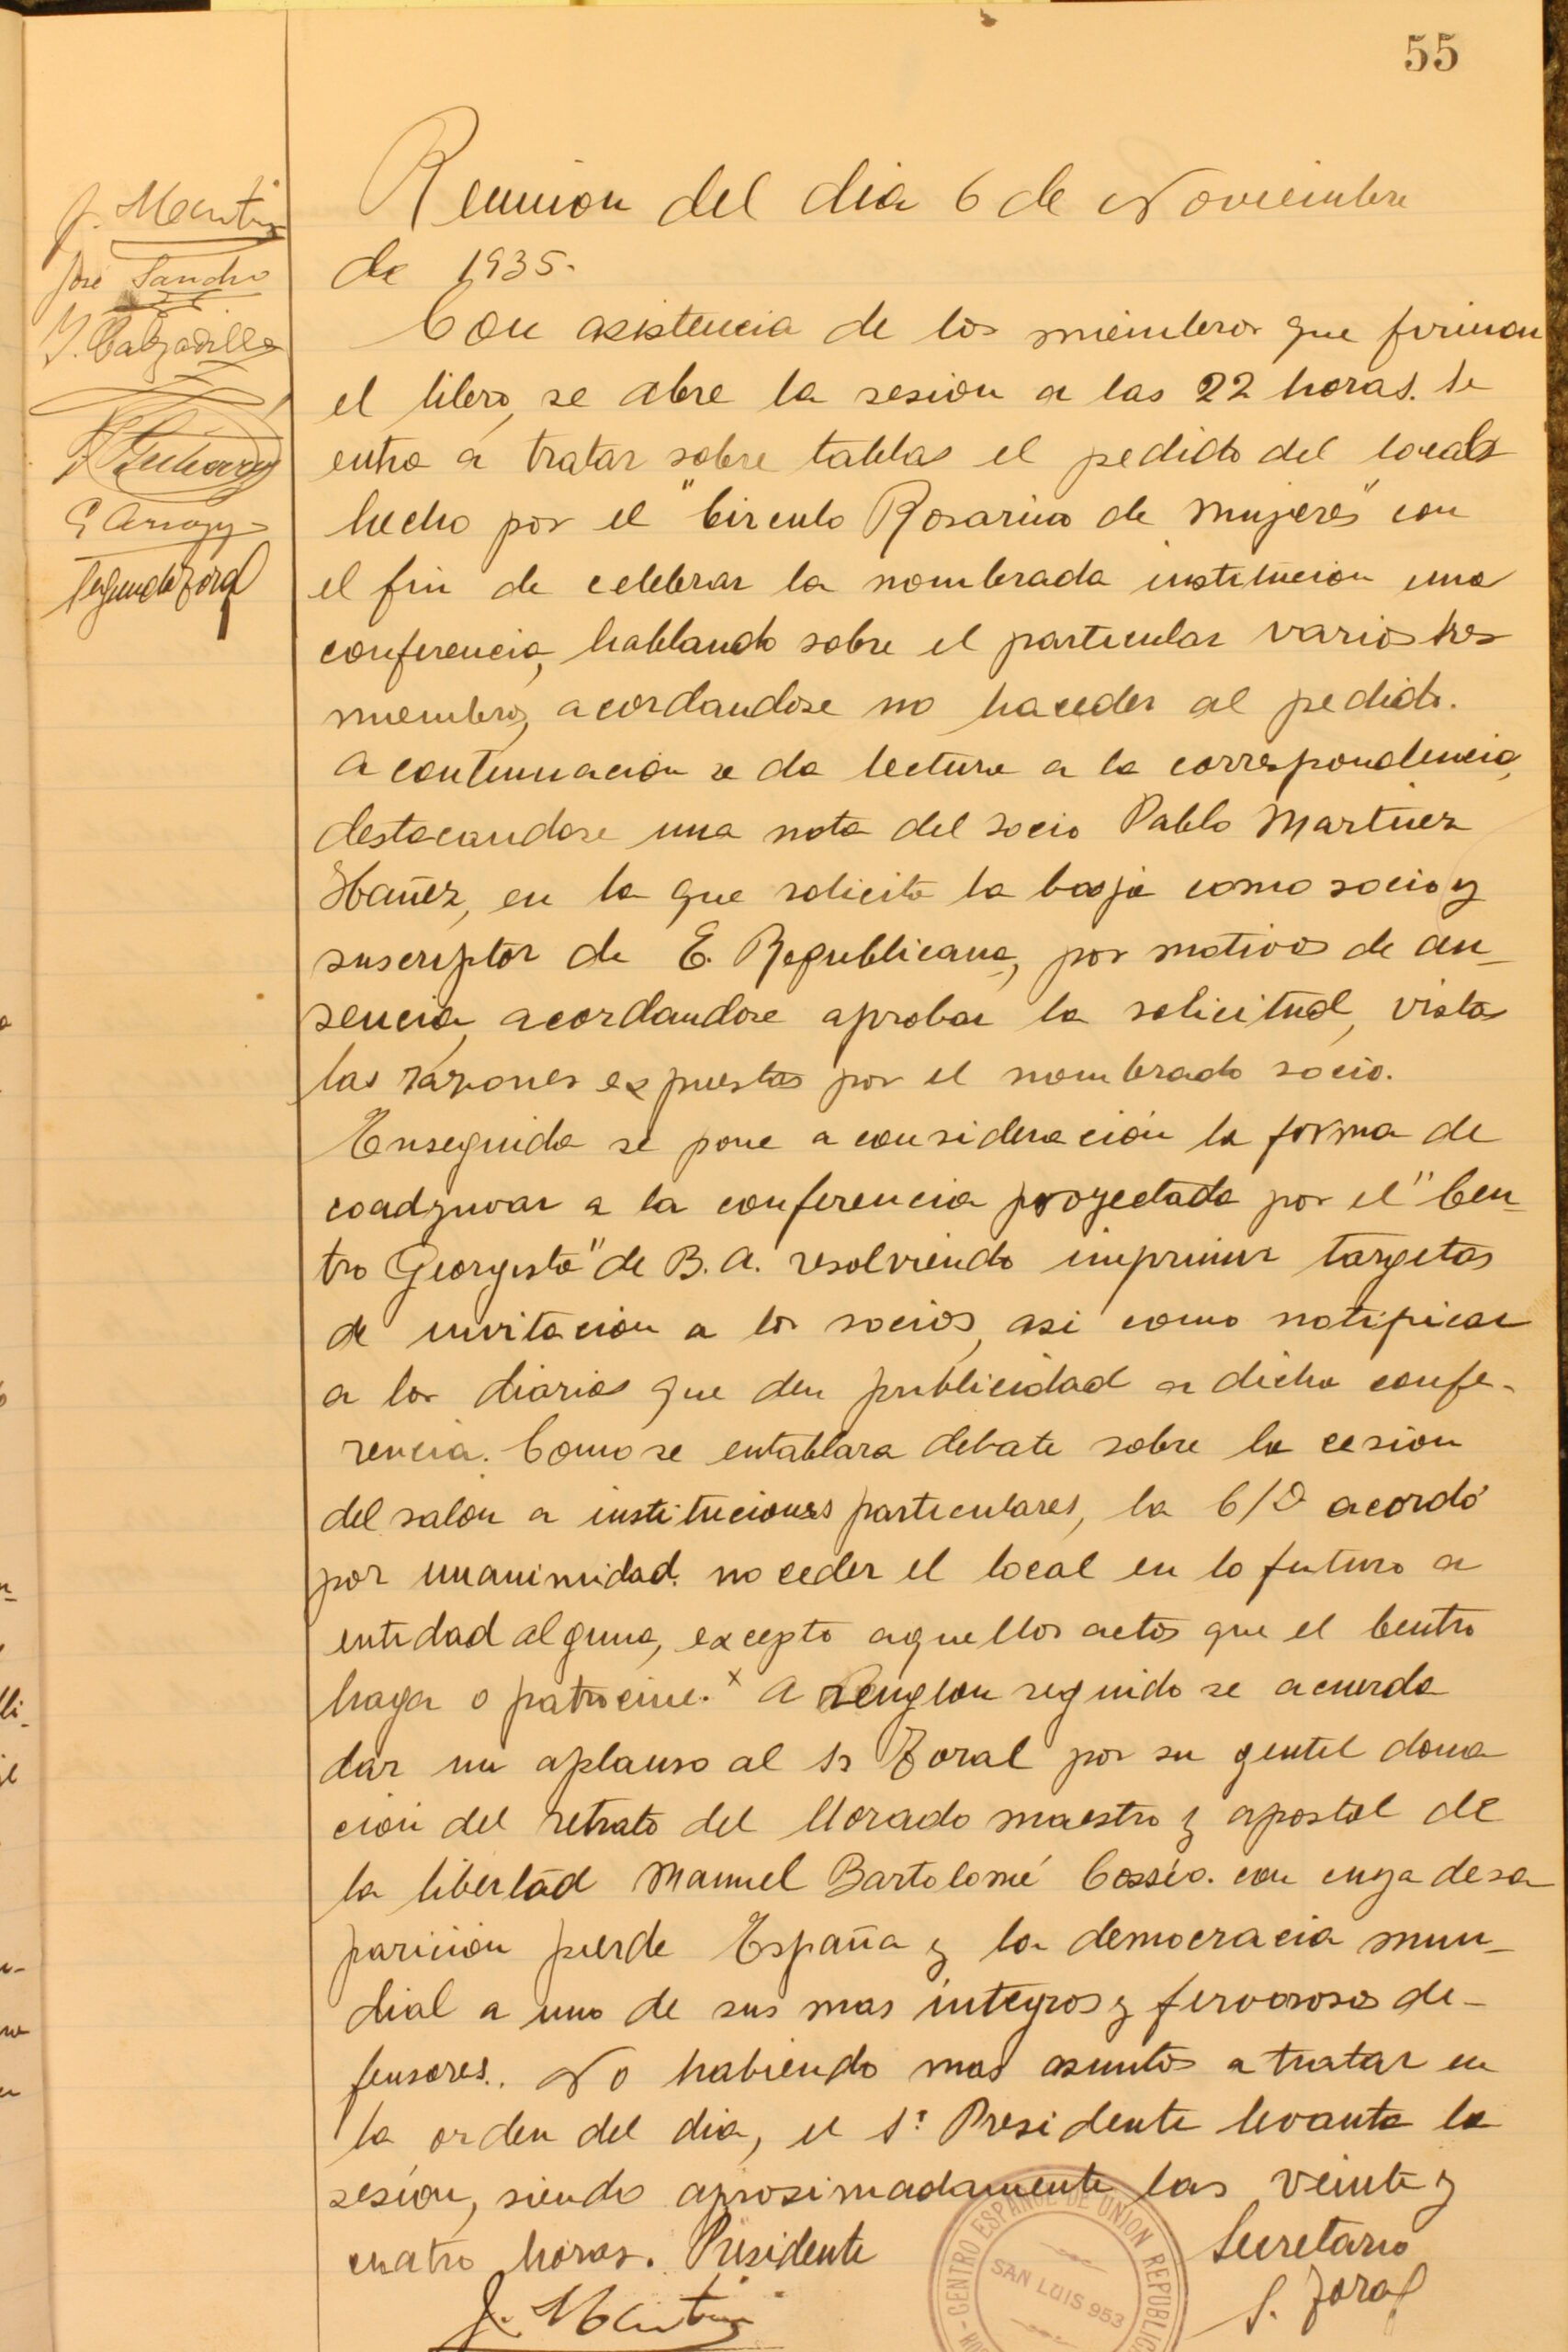 55
J. Martin
José Sancho
Y. Calzadilla
Segundo Toral
Reunion del dia 6 de Noviembre
de 1935.
Con asistencia de los miembros que firman
el libro, se abre la sesion a las 22 horas. Se
entra a tratar sobre tablas el pedido del local
hecho por el "Circulo Rosarino de Mujeres" con
el fin de celebrar la nombrada institucion una
conferencia, hablando sobre el particular varios Sres
miembros, acordandose no haceder al pedido.
A continuacion se da lectura a la correspondencia,
destacandose una nota del socio Pablo Martinez
Ibañez, en la que solicita la baja como socio y
suscriptor de E. Republicana, por motivos de au-
sencia, acordandose aprobar la solicitud, vistas
las razones expuestas por el nombrado socio.
Enseguida se pone a consideración la forma de
coadyuvar a la conferencia proyectada por el "Cen-
tro Georgista" de B. A. resolviendo imprimir targetas
de invitacion a los socios, asi como notificar
a los diarios que den publicidad a dicha confe-
rencia. Como se entablara debate sobre la cesion
del salon a instituciones particulares, la C/D acordó
por unanimidad. no ceder el local en lo futuro a
entidad alguna, excepto aquellos actos que el Centro
haga o patrocine. x A renglon seguido se acuerda
dar un aplauso al Sr Toral por su gentil dona
cion del retrato del llorado maestro y apostol de
la libertad Manuel Bartolomé Cossío. con cuya desa
paricion pierde España y la democracia mun-
dial a uno de sus mas integros y fervorosos de-
fensores.. No habiendo mas asuntos a tratar en
la orden del dia, el Sr. Presidente levanta la
sesion, siendo aprosimadamente las veinte y
cuatro horas. Presidente
Secretario
J. Martin
S. Toral
CENTRO ESPAÑOL DE UNION REPUBLIC
SAN LUIS 953